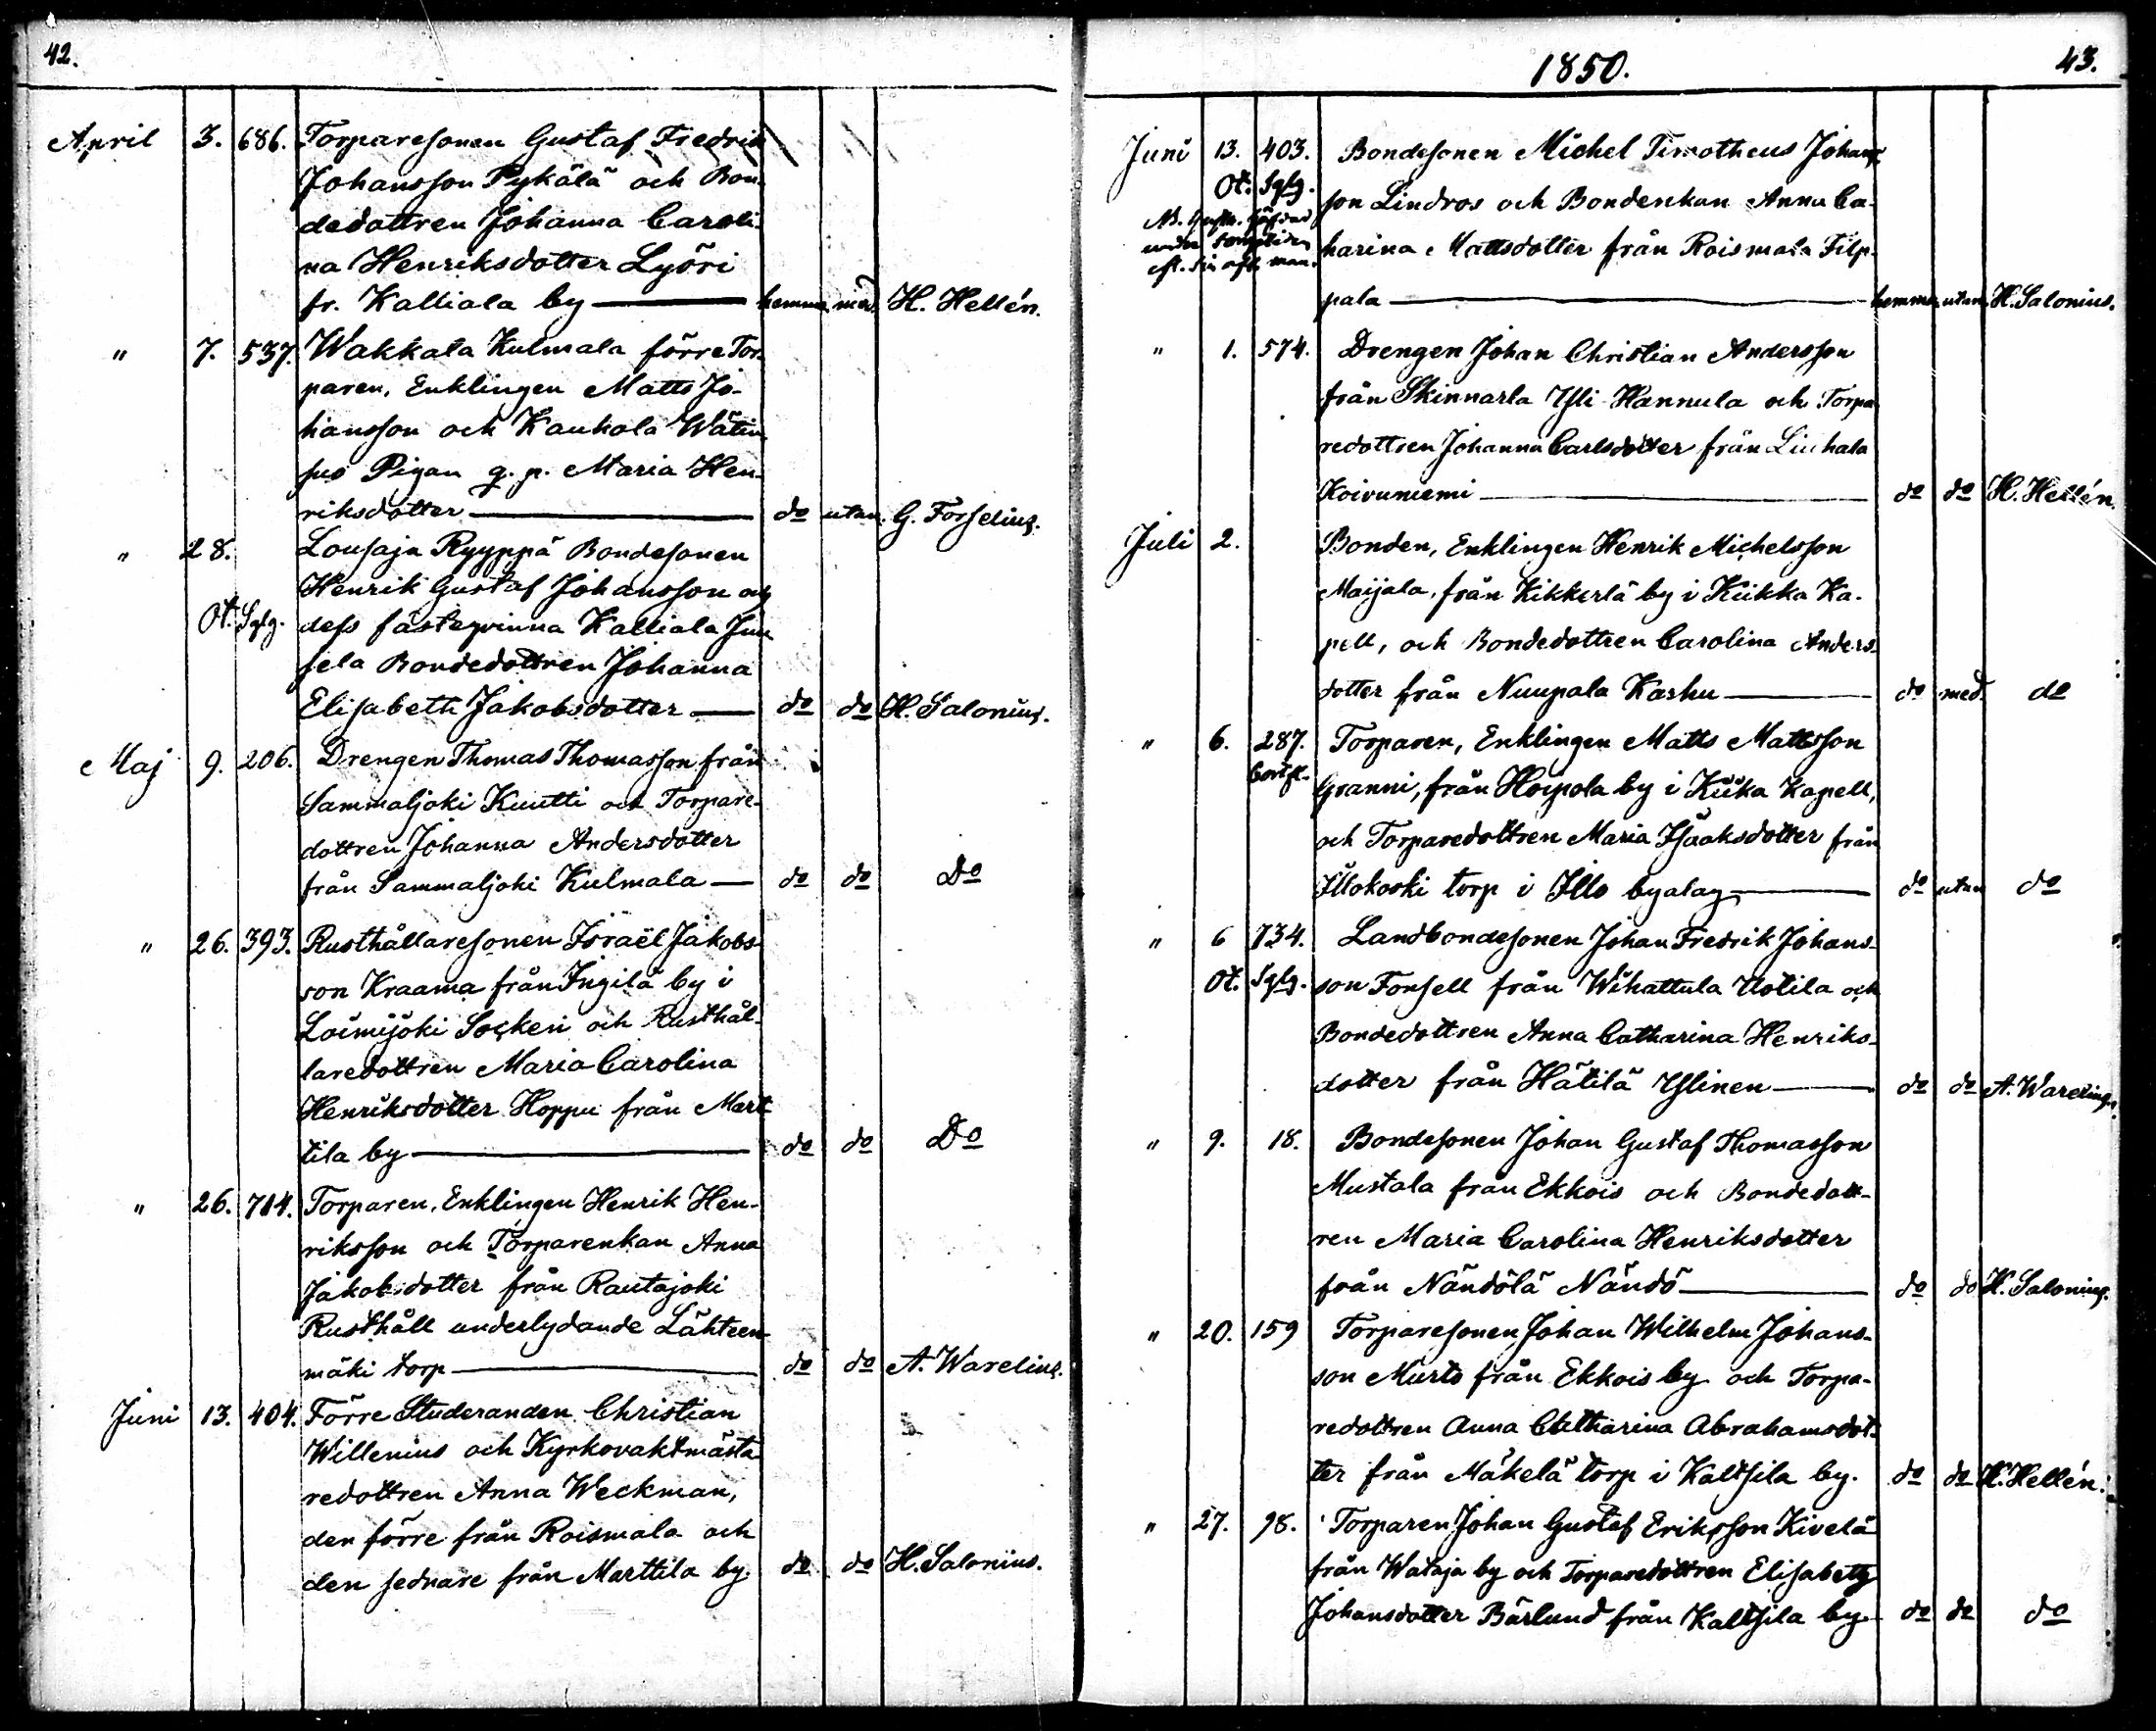 42.
April 3. 686. Torparesonen Gustaf Fredrik
Johansson Pykälä och Bon-
dedottren Johanna Caroli-
na Henriksdotter Lyöri
fr. Kalliala by — hemma med. H. Hellén.
" 7. 537. Wakkala Kulmala förre Tor-
paren, Enklingen Matts Jo-
hansson och Kaukola Wätin-
pus Pigan g. p. Maria Hen-
riksdotter — do utan. G. Forselius.
" 28. Lousaja Ryyppä Bondesonen
Henrik Gustaf Johansson och
Ot. Sglg. dess fästeqvinna Kalliala Jun
sela Bondedottren Johanna
Elisabeth Jakobsdotter — do do H. Salonius.
Maj 9. 206. Drengen Thomas Thomasson från
Sammaljoki Kuutti och Torpare-
dottren Johanna Andersdotter
från Sammaljoki Kulmala — do do Do
" 26. 393. Rusthållaresonen Israël Jakobs-
son Kraama från Ingilä by i
Loimijoki Socken och Rusthål-
laredottren Maria Carolina
Henriksdotter Hoppu från Mart-
tila by — do do Do
" 26. 714. Torparen, Enklingen Henrik Hen-
riksson och Torparenkan Anna
Jakobsdotter från Rautajoki
Rusthåll underlydande Lähteen-
mäki torp — do do A. Warelius.
Juni 13. 404. Förre Studeranden Christian
Willenius och Kyrkovaktmästa-
redottren Anna Weckman,
den förre från Roismala och
den sednare från Marttila by. do do H. Salonius.
1850. 43.
Juni 13. 403. Bondesonen Michel Timotheus Johans-
Ot. Sglg. son Lindros och Bondenkan Anna Ca-
harina Mattsdotter från Roismala Filp-
pala — hemma utan. H. Salonius.
" 1. 574. Drengen Johan Christian Andersson
från Skinnarla Yli-Hannula och Torpa-
redottren Johanna Carlsdotter från Liuhala
Koivuniemi — do do H. Hellén.
Juli 2. Bonden, Enklingen Henrik Michelsson
Maijala, från Kikkerlä by i Kiikka Ka-
pell, och Bondedottren Carolina Anders-
dotter från Nuupala Karhu — do med. do
" 6. 287. Torparen, Enklingen Matts Mattsson
Granni, från Horpola by i Kiika Kapell,
och Torparedottren Maria Isaaksdotter från
Illokoski torp i Illo byalag — do utan do
" 6 734. Landbondesonen Johan Fredrik Johans-
Ot. Sglg. son Forsell från Wihattula Uotila och
Bondedottren Anna Catharina Henriks-
dotter från Hätilä Ylinen — do do A. Warelius.
" 9. 18. Bondesonen Johan Gustaf Thomasson
Mustala från Ekkois och Bondedott-
ren Maria Carolina Henriksdotter
från Nändölä Nändö — do do H. Salonius.
" 20. 159 Torparesonen Johan Wilhelm Johans-
son Murto från Ekkois by och Torpa-
redottren Anna Catharina Abrahamsdot-
ter från Mäkelä torp i Kaltsila by. do do H. Hellén.
" 27. 98. Torparen Johan Gustaf Eriksson Kivelä
från Wataja by och Torparedottren Elisabeth
Johansdotter Bärlund från Kaltsila by do do do